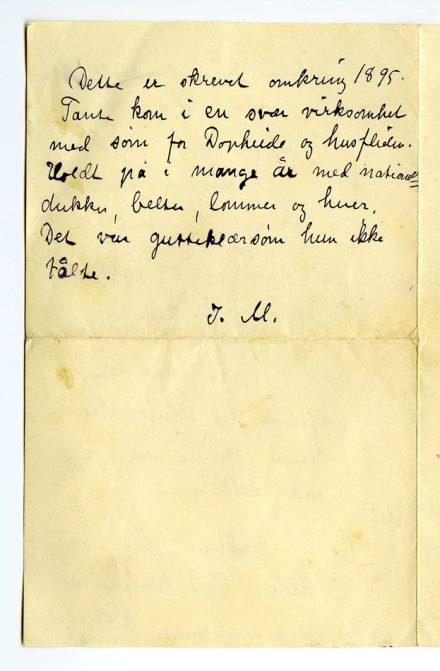 Dette er skrevet omkring 1895.
Tante kom i en svær virksomhet
med søm for Dopheide og husfliden.
Holdt på i mange år med national
dukker, belter, lommer og huer.
Det var gutteklærsøm hun ikke
tålte.
J. M.